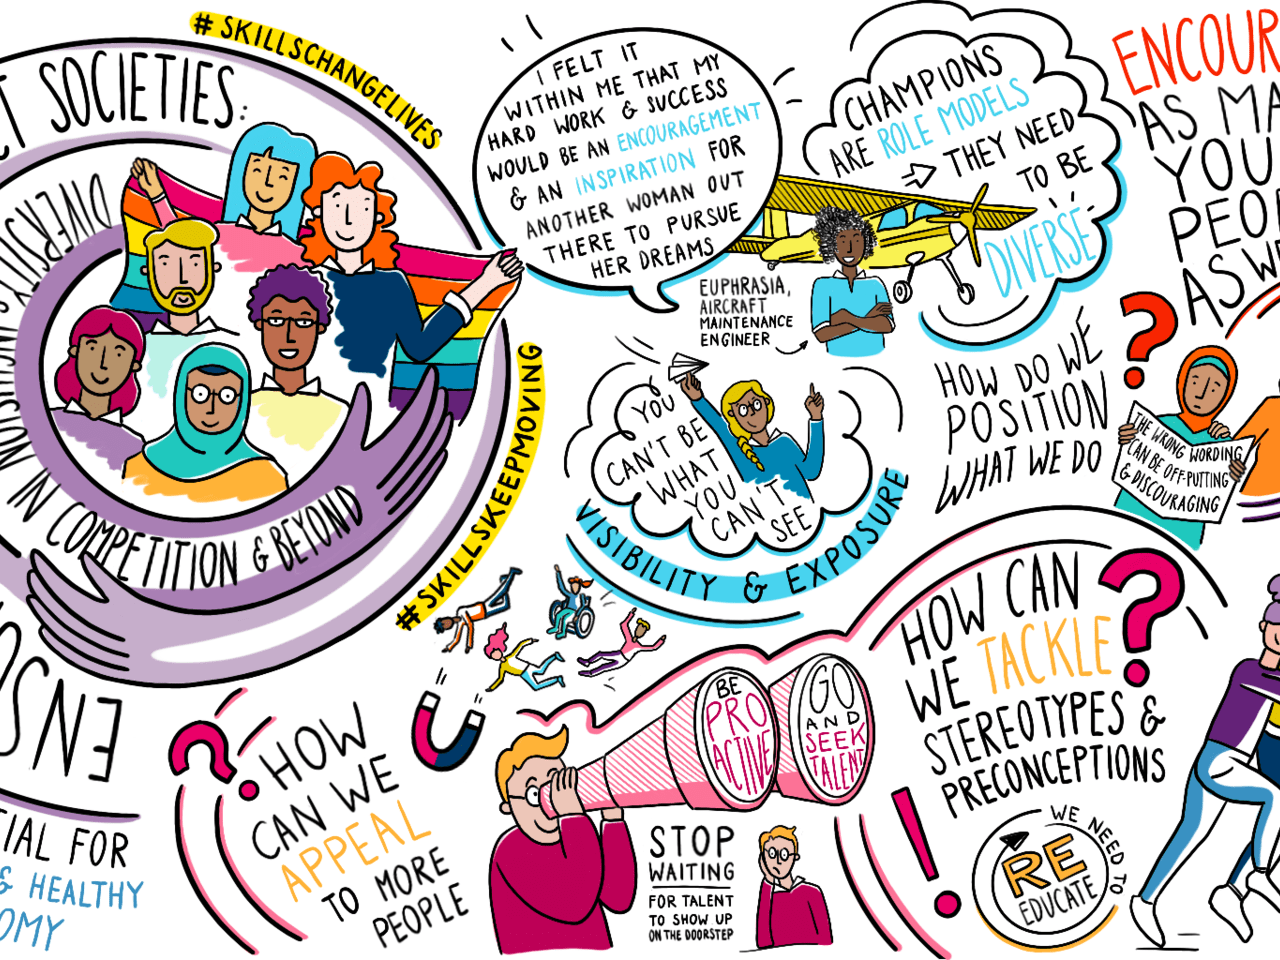 # SKILLSCHANGELIVES
SOCIETIES:
DIVERSITY & INCLUSION
IN COMPETITION & BEYOND
# SKILLSKEEPMOVING
ENS
TIAL FOR
& HEALTHY
OMY
I FELT IT
WITHIN ME THAT MY
HARD WORK & SUCCESS
WOULD BE AN ENCOURAGEMENT
& AN INSPIRATION FOR
ANOTHER WOMAN OUT
THERE TO PURSUE
HER DREAMS
EUPHRASIA,
AIRCRAFT
MAINTENANCE
ENGINEER
CHAMPIONS
ARE ROLE MODELS
THEY NEED
TO BE
DIVERSE
ENCOUR
AS MA
YOU
PEO
AS W
YOU
CAN'T BE
WHAT
YOU
CAN'T
SEE
VISIBILITY & EXPOSURE
HOW DO WE
POSITION
WHAT WE DO
?
THE WRONG WORDING
CAN BE OFF-PUTTING
& DISCOURAGING
?
HOW
CAN WE
APPEAL
TO MORE
PEOPLE
BE
PRO
ACTIVE
GO
AND
SEEK
TALENT
STOP
WAITING
FOR TALENT
TO SHOW UP
ON THE DOORSTEP
HOW CAN
WE TACKLE
STEREOTYPES &
PRECONCEPTIONS
?
!
WE NEED TO
RE
EDUCATE